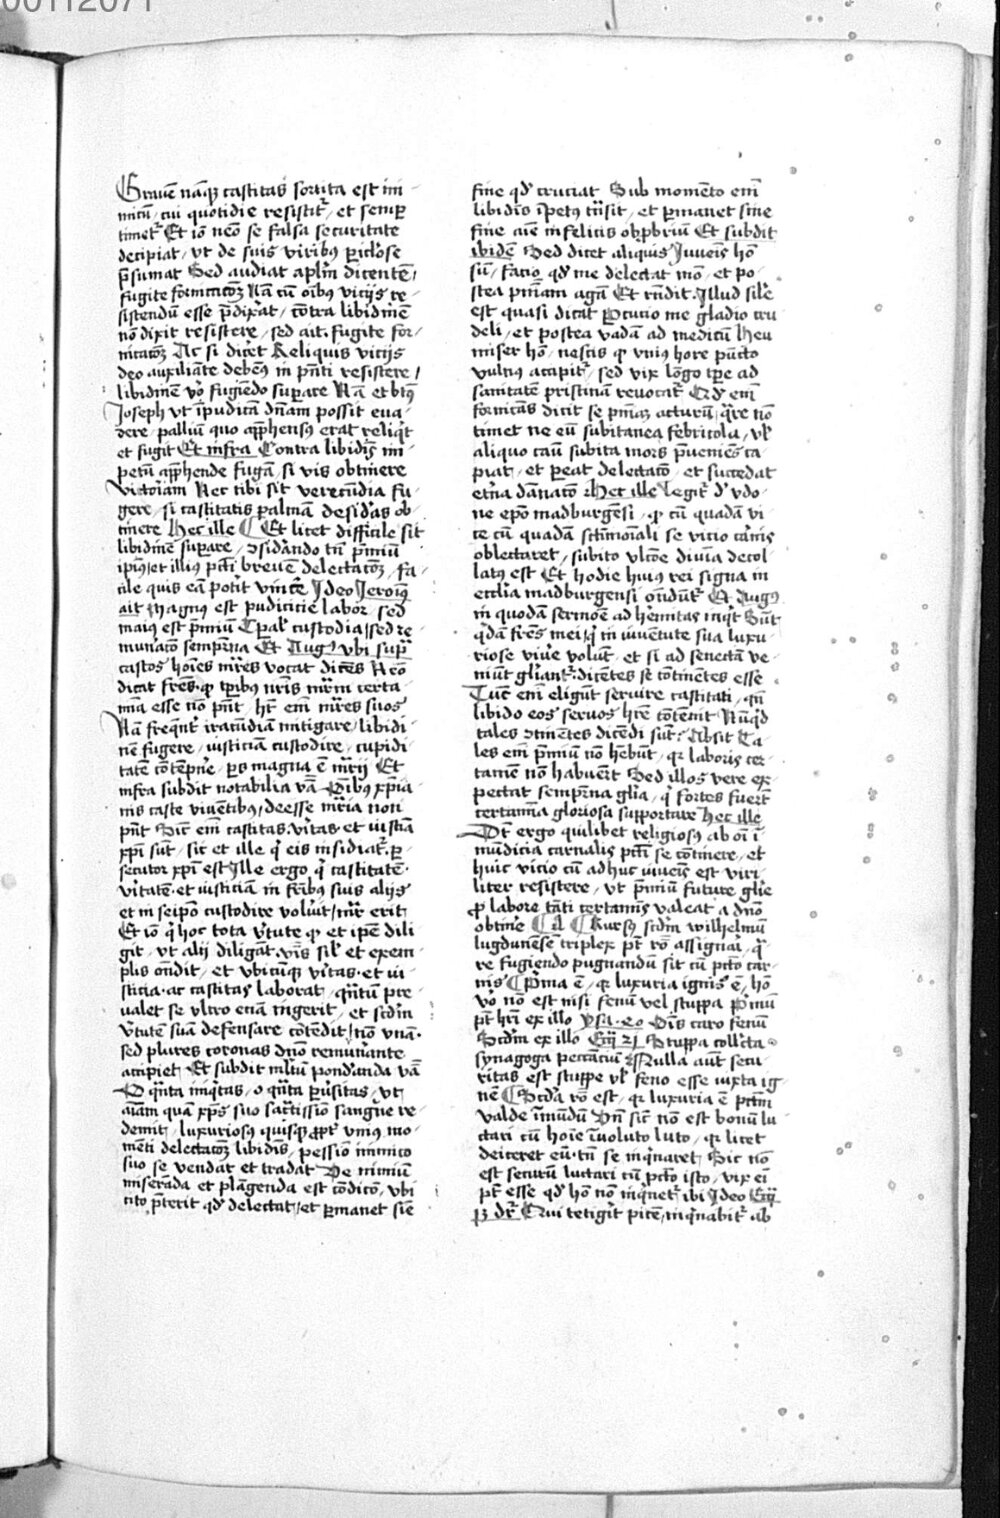 00112071
Grauē namqꝫ castitas sortita est ini-
micū / cui quotidie resistit᷑ / et semꝑ
timet᷑ Et iō nemo se falsa securitate
decipiat / vt de suis viribꝰ ꝑiclose
p̄sumat Sed audiat apl̄m dicentē /
fugite fornicacōꝫ Nā cū oībꝰ vicijs re-
sistendū esse p̄dixat / cōtra libidinē
nō dixit resistere / sed ait fugite for-
nicacōꝫ Ac si dicet Reliquis vicijs
deo auxiliāte debemꝰ in p̄nti resistere /
libidinē vo fugiēdo suꝑare Nā et btꝰ
Joseph vt īpudicā dnām possit eua-
dere / palliū quo appͤhensꝰ erat reliqͥt
et fugit Et infra Contra libidīs im-
petū appͤhende fugā / si vis obtinere
victoriam Nec tibi sit verecūdia fu-
gere / si castitatis palmā desidas ob-
tinere Hec ille Et licet difficile sit
libidinē suꝑare / ↄsidando tn̄ p̄miū
ipiꝰ / et illiꝰ pcti breuē delectacōꝫ / fa-
cile quis eā potit vincē Ideo Jeroīꝰ
ait Magnus est pudicicie labor / sed
maiꝰ est p̄miū Tꝑal custodia / sed re-
muneracō sempͥna Et Augꝰ vbi supͣ
castos hoīes mr̄es vocat dicēs Neō
dicat fres / qꝫ tꝑibꝰ nr̄is mr̄m certa-
mīa esse nō pn̄t / hn̄t em̄ mr̄es suos
Nā freqn̄t iracūdiā mitigare / libidi-
nē fugere / iusticiā custodire / cupidi-
tatē cōtēpne / ꝑs magna ē mr̄ij Et
infra subdit notabilia vā Oībꝰ xpīa-
nis caste viuentibꝰ / deesse mr̄ia non
pn̄t Sic em̄ castitas / vitas et iusticia
xpī sūt / sic et ille qͥ eis insidiat᷑ / ꝑ-
secutor xpī est Ille ergo qͥ castitatē
vitatē et iusticiam in fribꝰ suis alijs
et in seipō custodire voluit / mr̄ erit
Et iō qͥ hoc tota vtute qꝫ et ipē dili-
git / vt alij diligāt vīs sil et exem-
plis ondit / et vbicūqꝫ vitas et iu-
sticia ac castitas laborat / qn̄tū pre-
ualet se vltro eciā ingerit / et scdm
vtutē suā defensare cōtēdit / nō vnā
sed plures coronas dnō remunāte
accipiet Et subdit mltū pondāda vā
O qn̄ta iniqͥtas / o qn̄ta ꝑusitas / vt
aīam quā xpūs suo sactissiō sanguīe re-
demit / luxuriosꝰ quisqꝫ ppt vniꝰ mo-
mēti delectacōꝫ libidīs / pessiō inimico
suo se vendat et tradat De nimiū
miserāda et plāgenda est cōdicō / vbi
cito p̄terit qd delectat / et ꝑmanet sīe
fine qd cruciat Sub momēto em̄
libidīs īpetꝰ trāsit / et ꝑmanet sine
fine aīe infelicis obprobriū Et subdit
ibidē Sed dicet aliquis Juueīs hō
sū / facio qd me delectat mō / et po-
stea pnīam agā Et rn̄dit Illud sile
est quasi dicat ꝑcucio me gladio cru-
deli / et postea vadā ad medicū Heu
miser hō / nescis qꝫ vniꝰ hore pūcto
vulnꝰ accipit᷑ / sed vix lōgo tꝑe ad
sanitatē pristinā reuocat᷑ Qd em̄
fornicās dicit se pnīaꝫ acturū / qͣre nō
timet ne eū subitanea febricola / vl
aliquo casu subita mors p̄ueniēs ca-
piat / et ꝑeat delectacō / et succedat
etna dānacō Hec ille Legit᷑ de vdo-
ne epō madburgēsi / qꝫ cū quadā vi-
ce cū quadā sctīmoīali se vicio carnis
oblectaret / subito vlcōe diuīa decol-
latꝰ est Et hodie huiꝰ rei signa in
ecclīa madburgensi ondūt᷑ Et Augꝰ
in quodā sermoē ad hemitas inqͥt Sūt
qͥdā frēs mei / qͥ in iuuētute sua luxu-
riose viue volūt / et si ad senectā ve-
niūt gliant᷑ / dicētes se cōtinētes esse
Tūc em̄ eligūt seruire castitati / qn̄
libido eos seruos hre cōtēnit Nūqͥd
tales ↄtinētes dicēdi sūt / Absit Ta-
les em̄ p̄miū nō hebūt / qꝛ laboris cer-
tamē nō habuerīt Sed illos vere ex-
pectat sempͥna glīa / qͥ fortes fuerīt
certamīa gloriosa supportare Hec ille
Dꝫ ergo quilibet religiosꝰ ab oī ī-
mūdicia carnalis pcti se cōtinere / et
huic vicio cū adhuc iuueīs est viri-
liter resistere / vt p̄miū future glīe
ꝓ labore tāti certamīs valeat a dnō
obtinē Rursꝰ scdm wilhelmū
lugdunēsē triplex pt rō assignai / qͣ-
re fugiendo pugnandū sit cū pctō car-
nis Pͥma ē / qꝛ luxuria ignis ē / hō
vo nō est nisi fenū vel stuppa Pͥmū
pt hri ex illo Ysa. 40 Oīs caro fenū
Scdm ex illo Eccī 21 Stuppa collcta
synagoga peccāciū Nulla aut secu-
ritas est stuppe vl feno esse iuxta ig-
nē Scda rō est / qꝛ luxuria ē pctm
valde īmūdū Vn̄ sic nō est bonū lu-
ctari cū hoīe īuoluto luto / qꝛ licet
deiceret eū / tn̄ se inqͥnaret / Sic nō
est securū luctari cū pctō isto / vix eī
pt esse qd hō nō inqͥnet᷑ ibi Ideo Eccī
13 dr̄ Qui tetigit picē / inqͥnabit᷑ ab